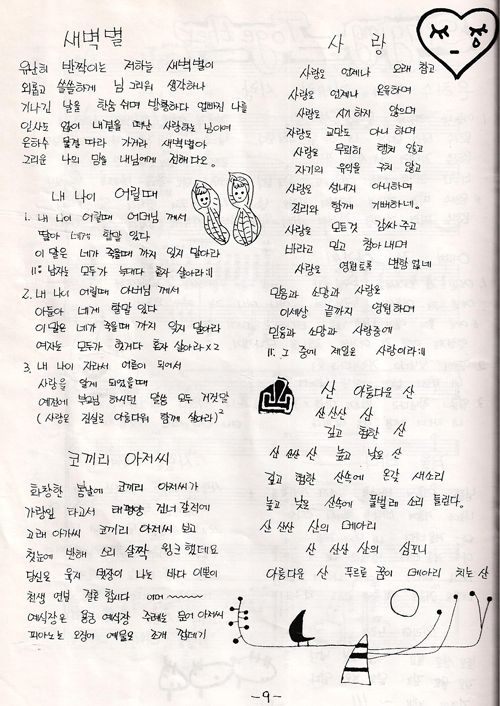 새벽별
유난히 반짝이는 저하늘 새벽별이
외롭고 쓸쓸하게 님그리워 생각하나
기나긴 날을 한숨 쉬며 방황하다 얼빠진 나를
인사도 없이 내곁을 떠난 사랑하는 님이여
은하수 물결 따라 가거라 새벽별아
그리운 나의 맘을 내님에게 전해다오.
내 나이 어릴때
1. 내 나이 어릴때 어머님 께서
딸아 네게 할말 있다
이 말은 네가 죽을때 까지 잊지 말아라
||: 남자는 모두가 늑대다 혼자 살아라 :||
2. 내 나이 어릴때 아버님 께서
아들아 네게 할말 있다
이 말은 네가 죽을때 까지 잊지 말아라
여자는 모두가 여우다 혼자 살아라 x2
3. 내 나이 자라서 어른이 되어서
사랑을 알게 되었을때
예전에 부모님 하시던 말씀 모두 거짓말
(사랑은 진실로 아름다워 함께 살아라)²
코끼리 아저씨
화창한 봄날에 코끼리 아저씨가
가랑잎 타고서 태평양 건너 갈적에
고래 아가씨 코끼리 아저씨 보고
첫눈에 반해 소리 살짝 윙크 했데요
당신은 육지 멋장이 나는 바다 이쁜이
천생 연분 결혼 합시다 어머~~~~
예식장은 용궁 예식장 주례는 문어 아저씨
피아노는 오징어 예물은 조개 껍데기
사 랑
사랑은 언제나 오래 참고
사랑은 언제나 온유하며
사랑은 시기 하지 않으며
자랑도 교만도 아니 하며
사랑은 무례히 행치 않고
자기의 유익을 구치 않고
사랑은 성내지 아니하며
진리와 함께 기뻐하네.
사랑은 모든것 감싸 주고
바라고 믿고 참아내며
사랑은 영원토록 변함 없네
믿음과 소망과 사랑은
이세상 끝까지 영원하며
믿음과 소망과 사랑중에
||: 그 중에 제일은 사랑이라 :||
산 아름다운 산
산 산산 산
깊고 험한 산
산 산산 산 높고 낮은 산
깊고 험한 산속에 온갖 새소리
높고 낮은 산속에 풀벌레 소리 들린다.
산 산산 산의 메아리
산 산산 산의 심포니
아름다운 산 푸르른 꿈이 메아리 치는 산
-9-